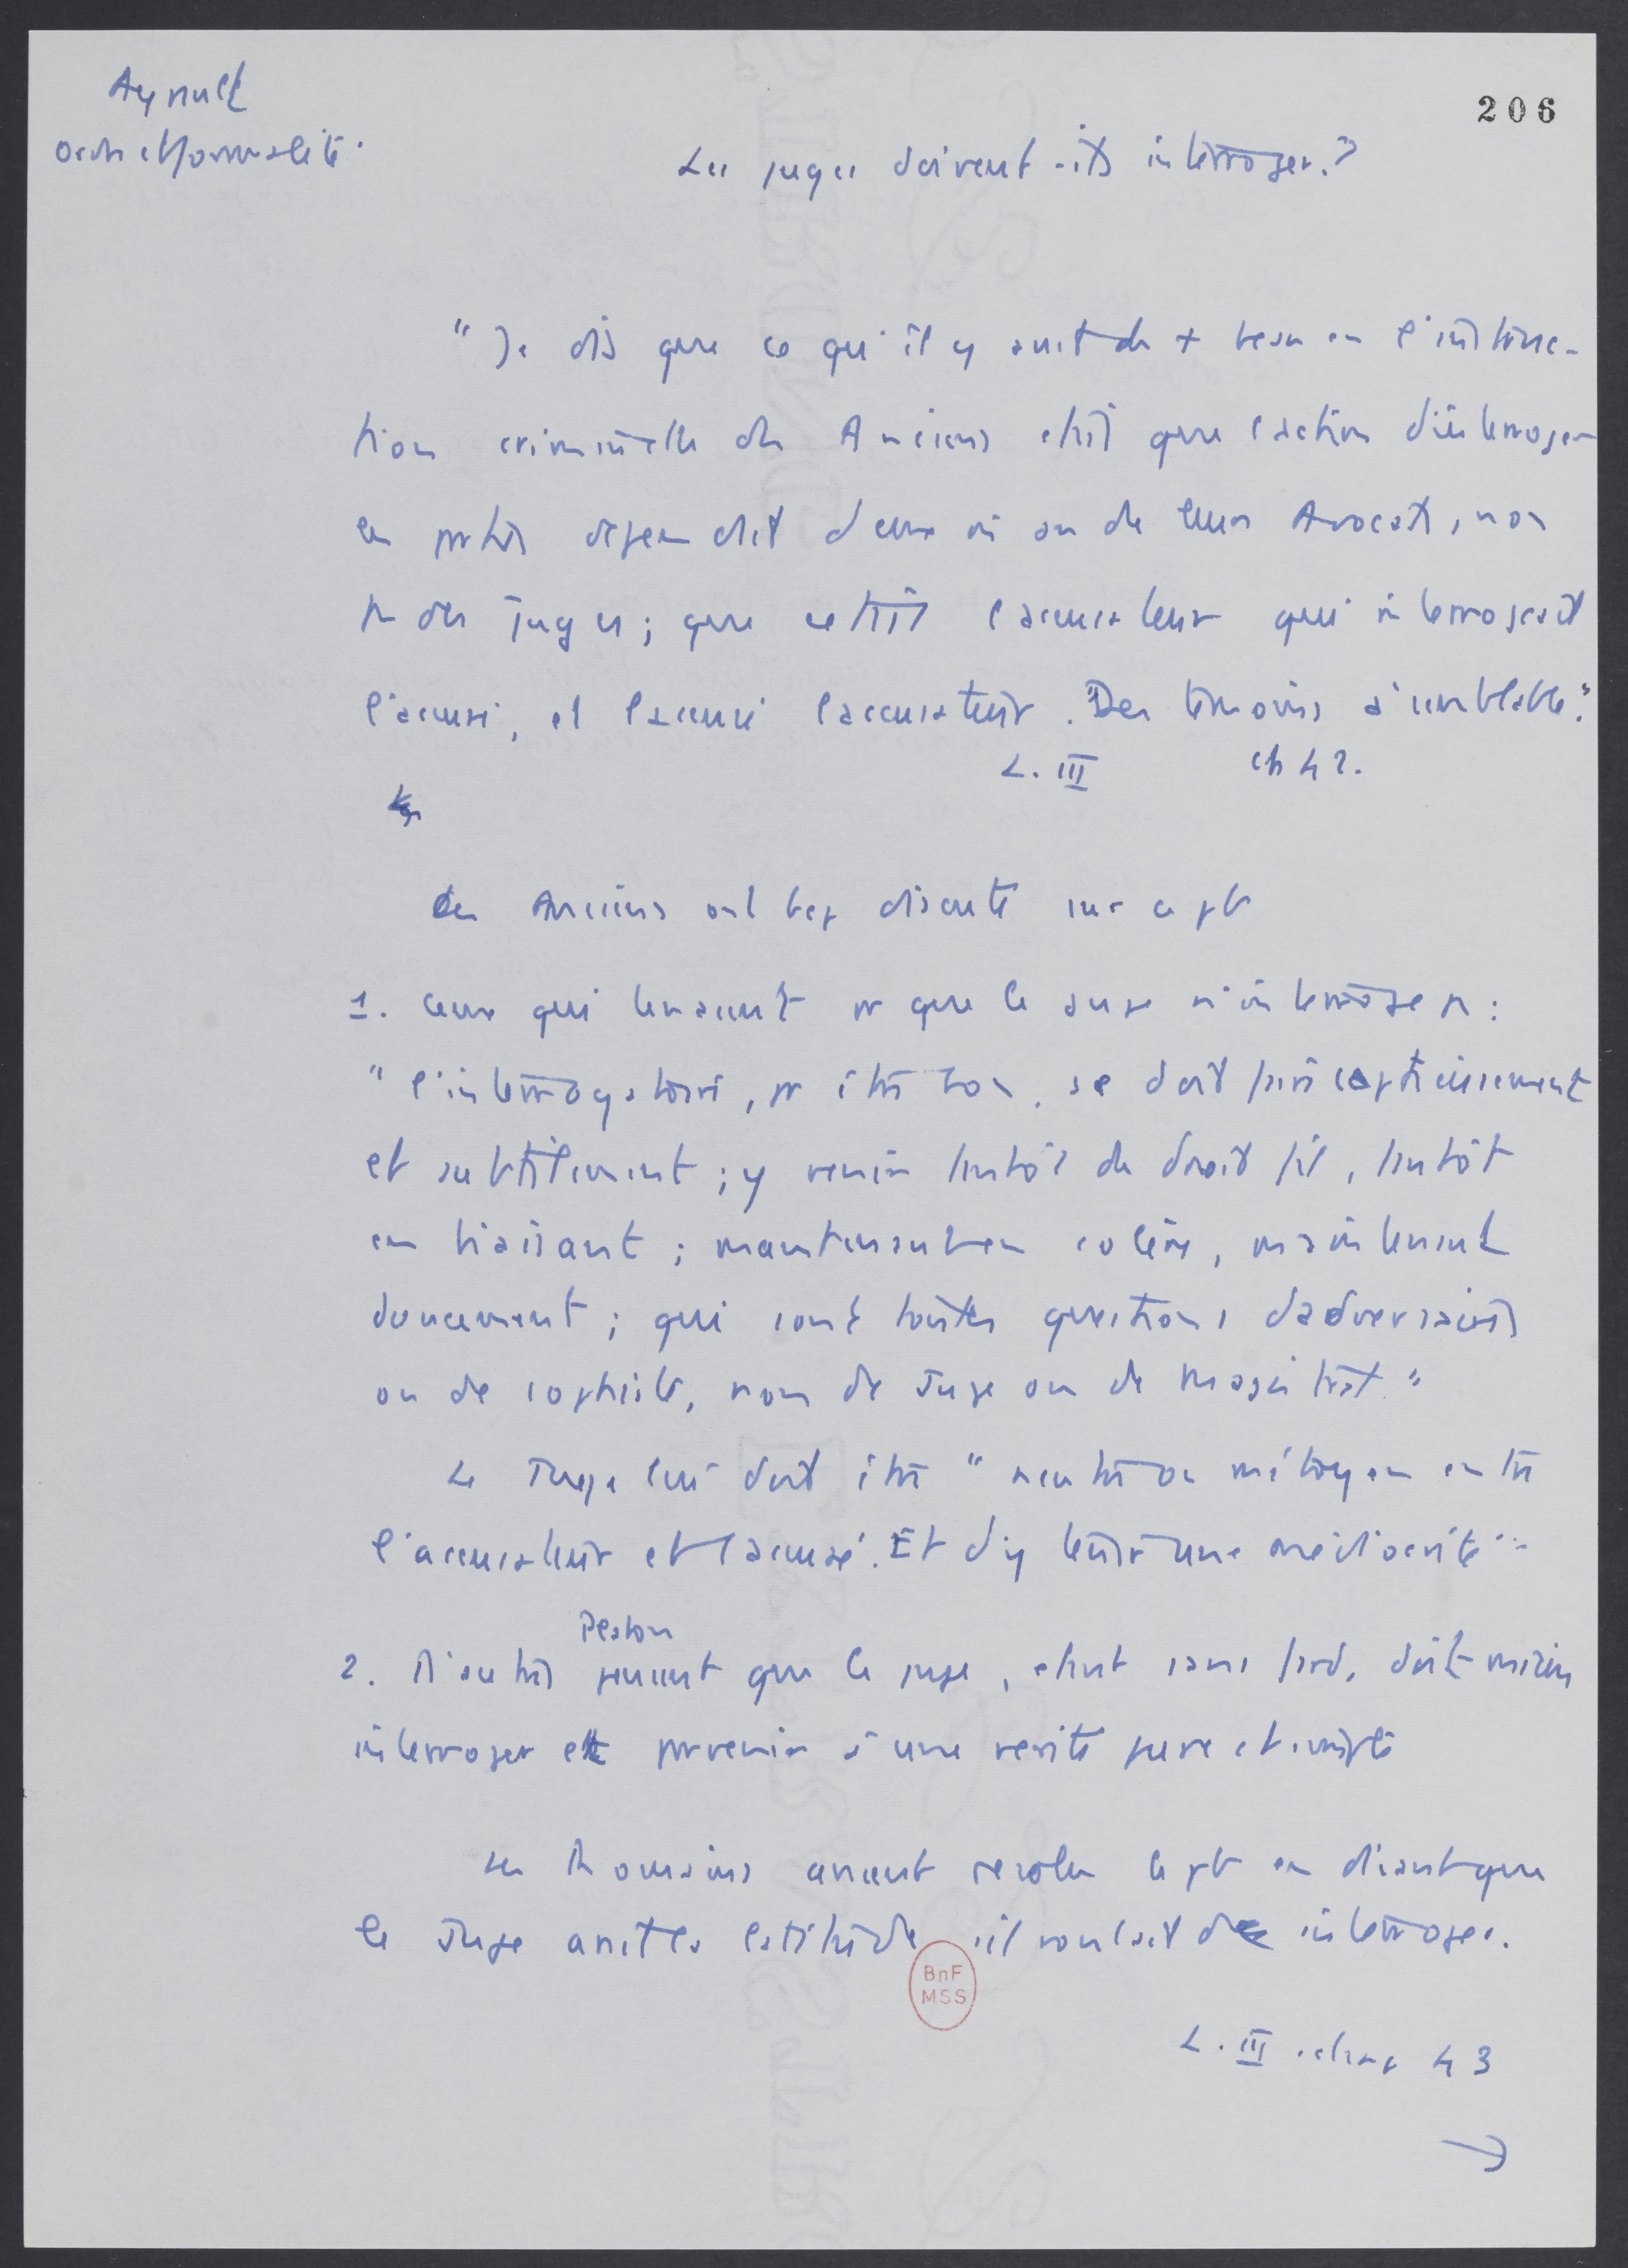 Ayrault
Ordre et formalité.
206
Les juges doivent-ils interroger ?
" Je dis que ce qu'il y avait de + beau en l'instruc-
tion criminelle des Anciens était que l'action d'interroger
les parties dépendait d'eux ou de leurs Avocats, non
pas des Juges ; que c'était l'accusateur qui interrogeait
l'accusé, et l'accusé l'accusateur. Des témoins semblable."
L. III ch 42.
Les Anciens ont bcp discuté sur ce pt
1. Ceux qui tenaient pr que le Juge n'interroge pas :
" l'interrogatoire, pr être bon, se doit faire captieusement
et subtilement ; y venir tantôt de droit fil, tantôt
en biaisant ; maintenant en colère, maintenant
doucement ; qui sont toutes questions d'adversaires
ou de sophiste, non de Juge ou de Magistrat."
Le Juge lui doit être " neutre ou métoyen entre
l'accusateur et l'accusé. Et d'y tenir une médiocrité "
Platon
2. D'autres pensent que le juge, étant sans fard, doit mieux
interroger et parvenir à une vérité pure et simple
Les Romains avaient résolu le pt en disant que
le Juge avait la latitude s'il voulait d' interroger.
BnF
MSS
L. III chap 43
→